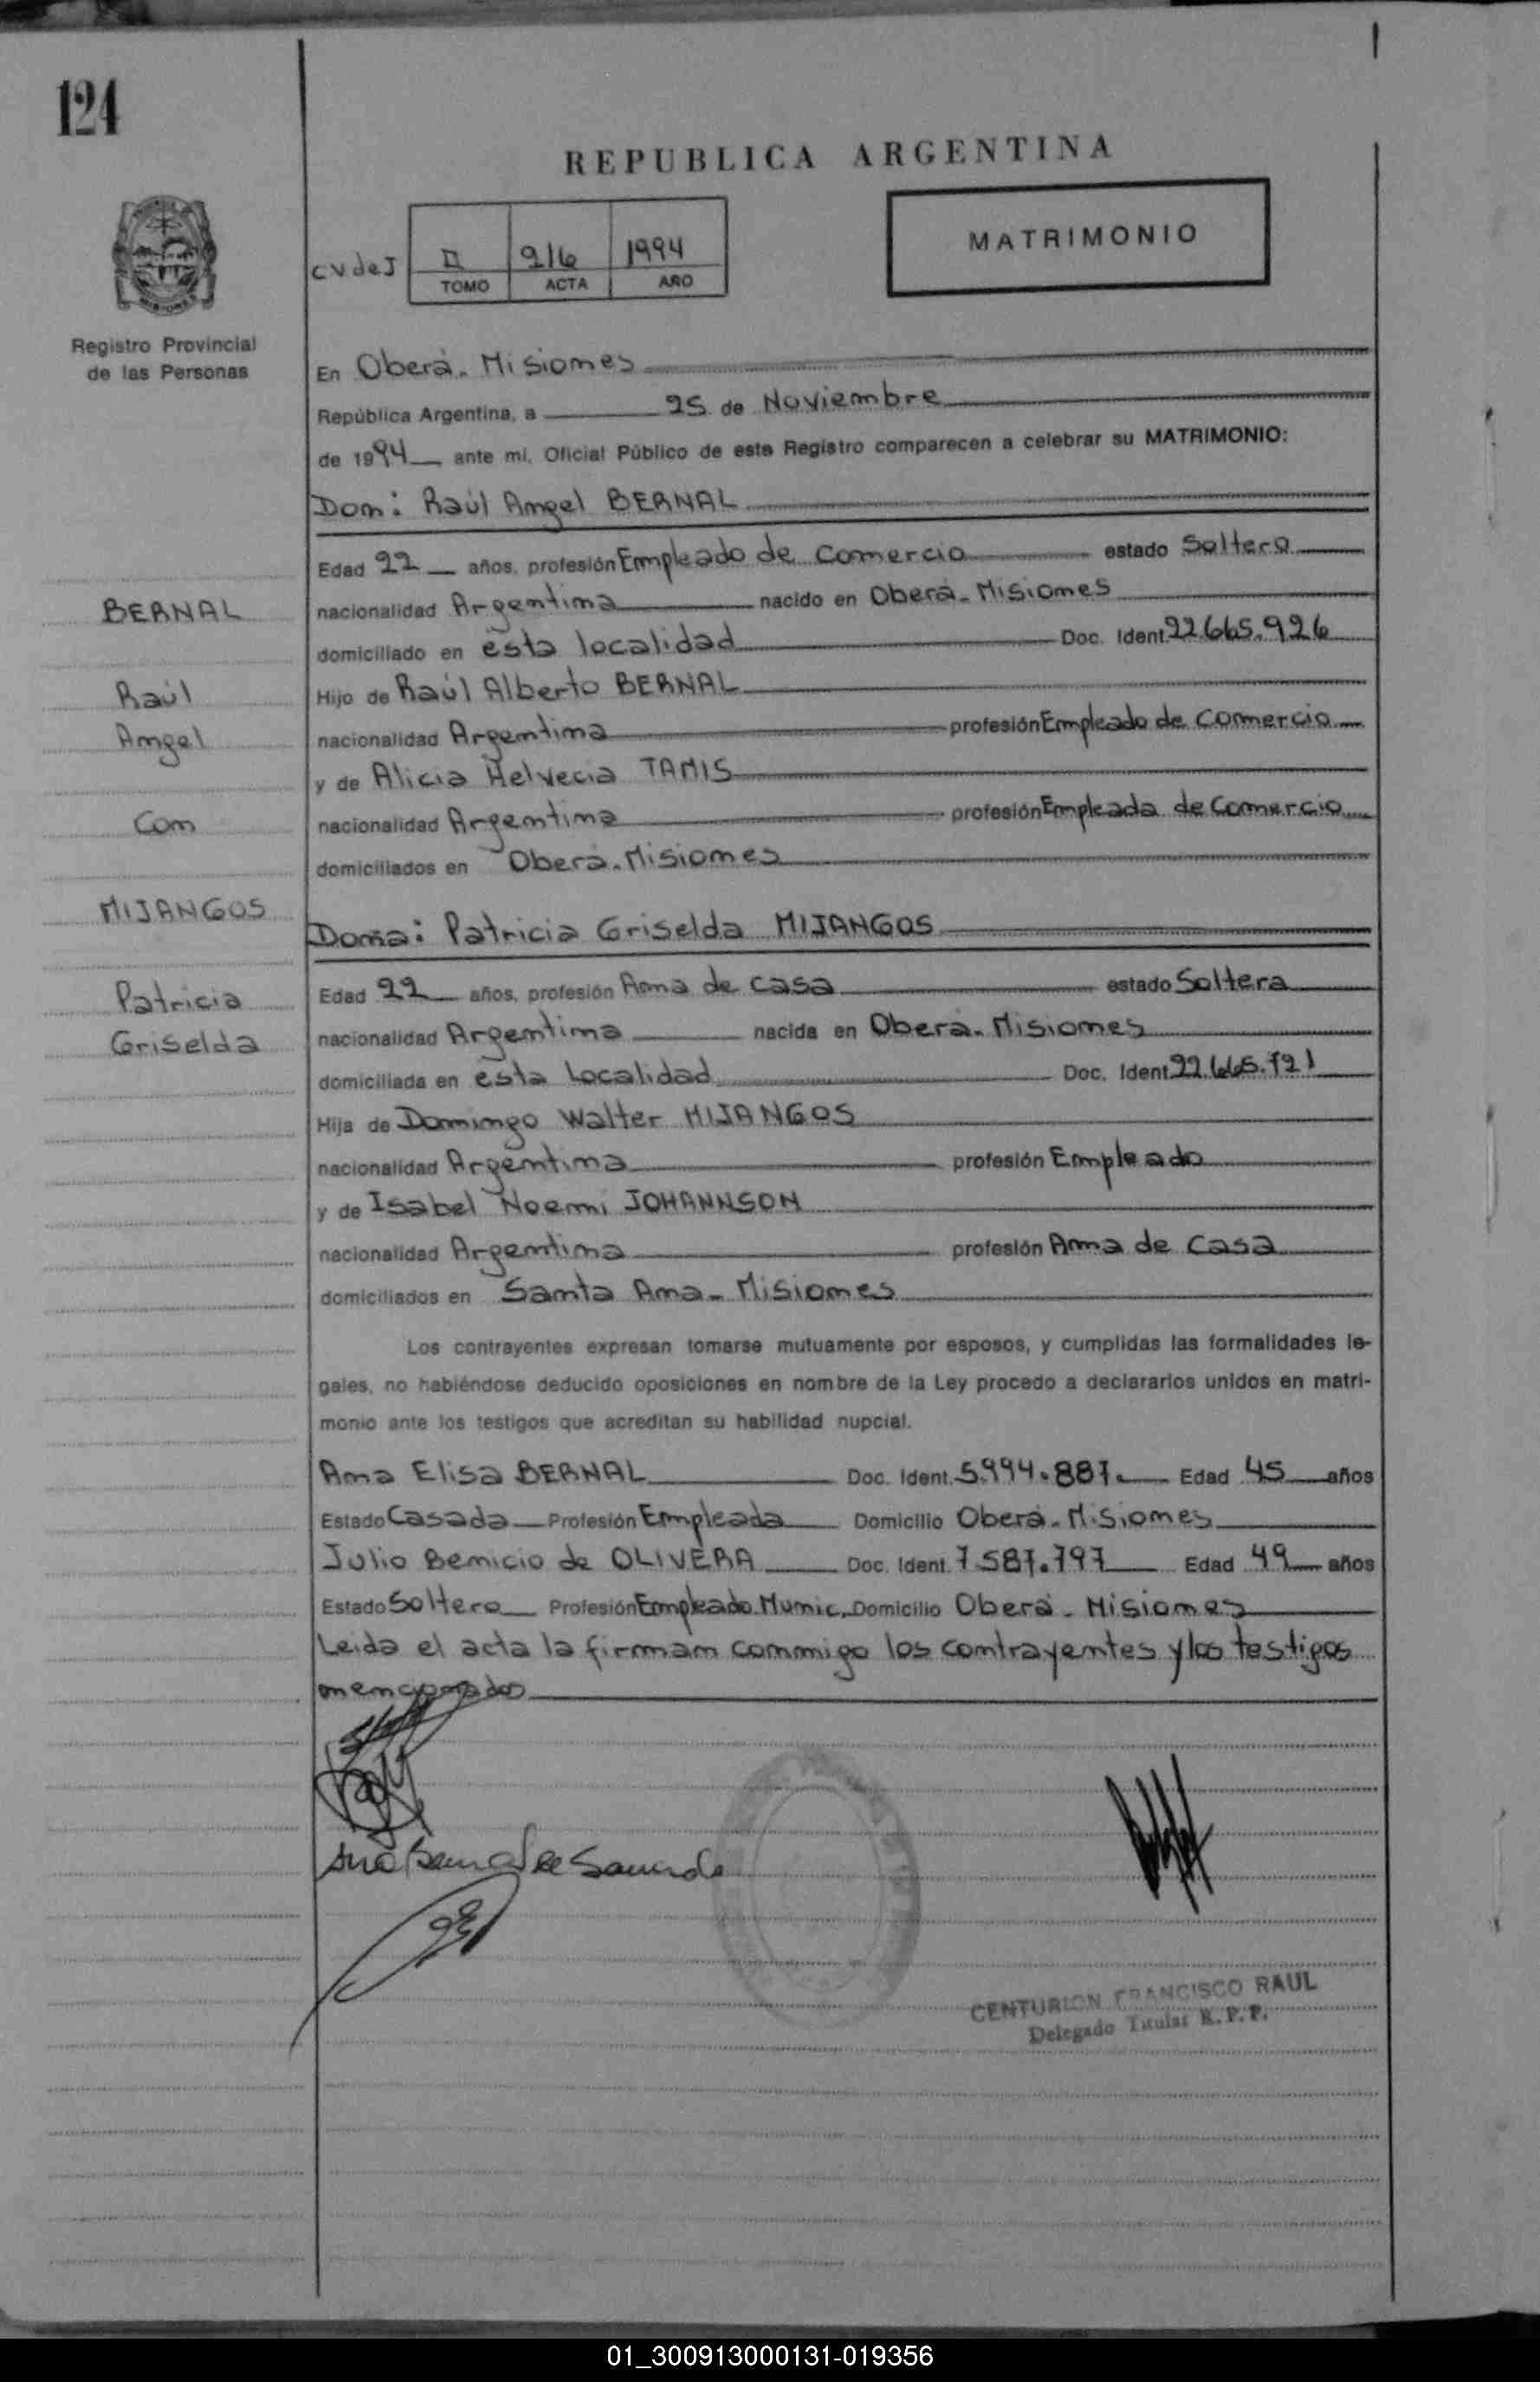 124
REPUBLICA ARGENTINA
MATRIMONIO
CVdeJ II 216 1994
TOMO ACTA AÑO
Registro Provincial
de las Personas
En Oberá - Misiones
República Argentina, a 25 de Noviembre
de 1994 ante mí, Oficial Público de este Registro comparecen a celebrar su MATRIMONIO:
Don: Raúl Angel BERNAL
Edad 22 años, profesión Empleado de Comercio estado Soltero
nacionalidad Argentina nacido en Oberá - Misiones
domiciliado en esta localidad Doc. Ident. 22.665.926
Hijo de Raúl Alberto BERNAL
nacionalidad Argentina profesión Empleado de Comercio
y de Alicia Helvecia TAMIS
nacionalidad Argentina profesión Empleada de Comercio
domiciliados en Oberá - Misiones
Doña: Patricia Griselda MIJANGOS
Edad 22 años, profesión Ama de Casa estado Soltera
nacionalidad Argentina nacida en Oberá - Misiones
domiciliada en esta Localidad Doc. Ident. 22.665.721
Hija de Domingo Walter MIJANGOS
nacionalidad Argentina profesión Empleado
y de Isabel Noemi JOHANNSON
nacionalidad Argentina profesión Ama de Casa
domiciliados en Santa Ana - Misiones
BERNAL
Raúl
Angel
Con
MIJANGOS
Patricia
Griselda
Los contrayentes expresan tomarse mutuamente por esposos, y cumplidas las formalidades le-
gales, no habiéndose deducido oposiciones en nombre de la Ley procedo a declararlos unidos en matri-
monio ante los testigos que acreditan su habilidad nupcial.
Ana Elisa BERNAL Doc. Ident. 5.994.887. Edad 45 años
Estado Casada Profesión Empleada Domicilio Oberá - Misiones
Julio Benicio de OLIVERA Doc. Ident. 7.587.797 Edad 49 años
Estado Soltero Profesión Empleado Munic. Domicilio Oberá - Misiones
Leida el acta la firman conmigo los contrayentes y los testigos
mencionados
CENTURION FRANCISCO RAUL
Delegado Titular R.P.P.
01_300913000131-019356